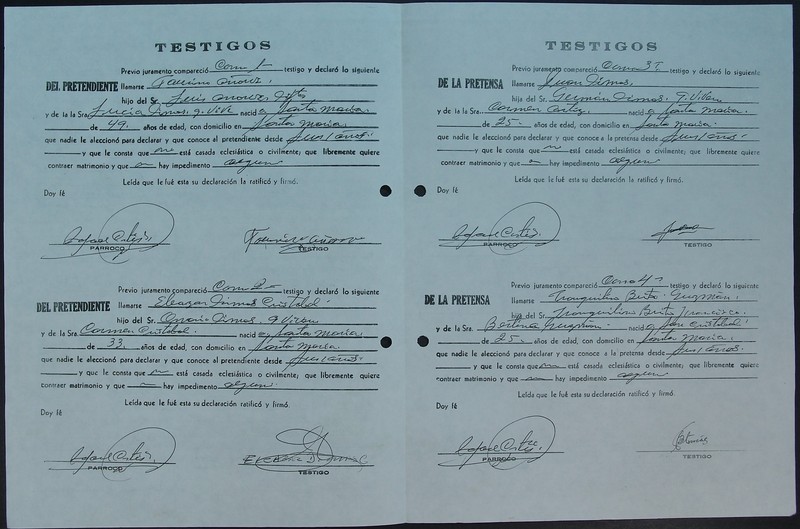 TESTIGOS
Previo juramento compareció Como 1- testigo y declaró lo siguiente
DEL PRETENDIENTE llamarse
hijo del Sr. Luis
y de la Sra. Lucia Dimas q. Vive nació en Santa Maria.
de 49. años de edad, con domicilio en Santa Maria.
que nadie le aleccionó para declarar y que conoce al pretendiente desde años.
y que le consta que no está casada eclesiástica o civilmente; que libremente quiere
contraer matrimonio y que hay impedimento
Leída que le fué esta su declaración la ratificó y firmó.
Doy fé
Rafael Cortés.
PARROCO
TESTIGO
Previo juramento compareció Como 2- testigo y declaró lo siguiente
DEL PRETENDIENTE llamarse Eleazar Dimas Cristobal
hijo del Sr. Dimas q Viven
y de la Sra. Carmen Cristobal. nació en Santa Maria.
de 33. años de edad, con domicilio en Santa Maria.
que nadie le aleccionó para declarar y que conoce al pretendiente desde años.
y que le consta que no está casada eclesiástica o civilmente; que libremente quiere
contraer matrimonio y que hay impedimento
Leída que le fué esta su declaración ratificó y firmó
Doy fé
Rafael Cortés.
PARROCO
TESTIGO
TESTIGOS
Previo juramento compareció Como 3- testigo y declaró lo siguiente
DE LA PRETENSA llamarse Juan Dimas.
hijo del Sr. Germán Dimas. q. Viven
y de la Sra. Carmen Cortez. nació en Santa Maria.
de 25- años de edad, con domicilio en Santa Maria.
que nadie le aleccionó para declarar y que conoce a la pretensa desde años.
y que le consta que está casada eclesiástica o civilmente; que libremente quiere
contraer matrimonio y que hay impedimento
Leída que le fué esta su declaración la ratificó y firmó.
Doy fé
Rafael Cortés.
PARROCO
TESTIGO
Previo juramento compareció Como 4- testigo y declaró lo siguiente
DE LA PRETENSA llamarse Tranquilino Guzmán.
hijo del Sr. Tranquilino Francisco.
y de la Sra. Guzman nació en San Cristobal.
de 25- años de edad, con domicilio en Santa Maria.
que nadie le aleccionó para declarar y que conoce a la pretensa desde años.
y que le consta que está casada eclesiástica o civilmente; que libremente quiere
contraer matrimonio y que hay impedimento
Leída que le fué esta su declaración ratificó y firmó
Doy fé
Rafael Cortés.
PARROCO
TESTIGO